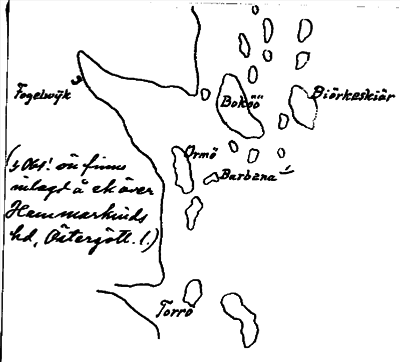 Fogelwijk
Boköö
Biörkeskiär
Ormö
Barbena
(Obs! ön finns
inlagd å ek över
Hammarkinds
hd, Östergötl.!)
Torrö